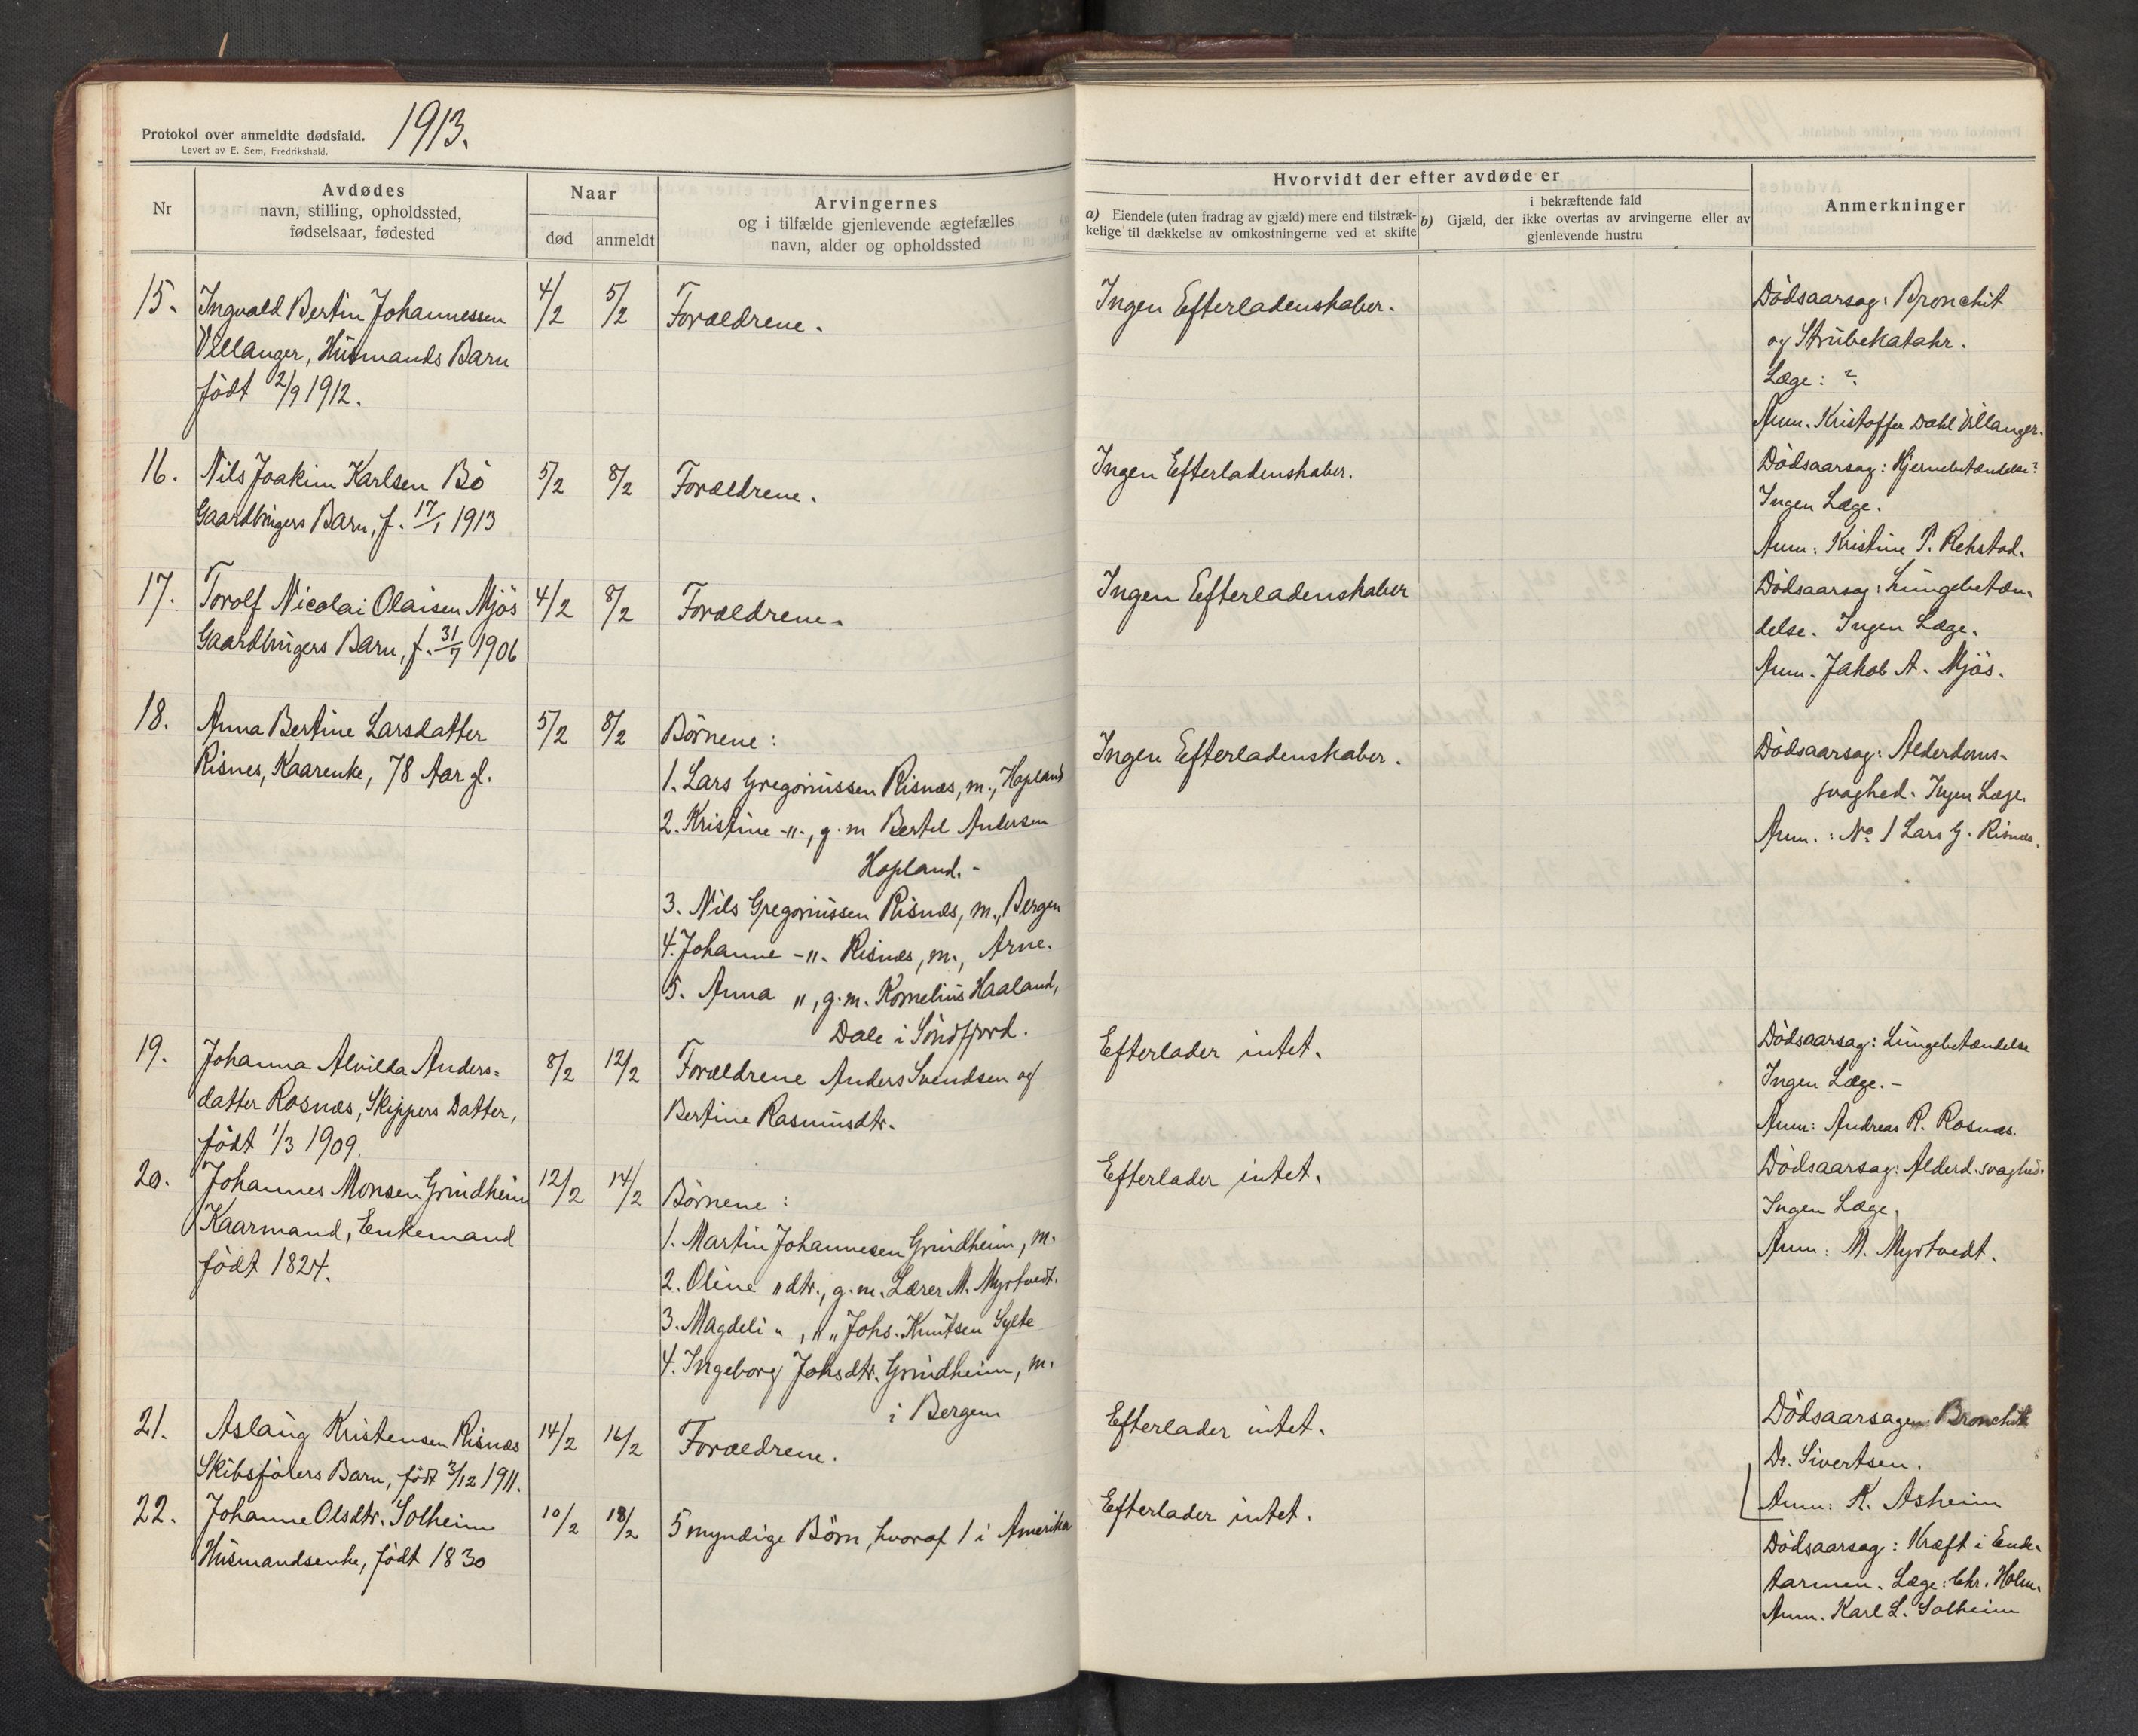 Protokol over anmeldte dødsfald.
Levert av E. Sem, Fredrikshald.
1913.
Nr
Avdødes
navn, stilling, opholdssted,
fødselsaar, fødested
Naar
død
anmeldt
Arvingernes
og i tilfælde gjenlevende ægtefælles
navn, alder og opholdssted
Hvorvidt der efter avdøde er
a) Eiendele (uten fradrag av gjæld) mere end tilstræk-
kelige til dækkelse av omkostningerne ved et skifte
i bekræftende fald
b) Gjæld, der ikke overtas av arvingerne eller av
gjenlevende hustru
Anmerkninger
15.
Ingvald Bertin Johannessen
Villanger, Husmands Barn
født 2/9 1912.
4/2
5/2
Forældrene.
Ingen Efterladenskaber.
Dødsaarsag: Bronchit
og Strubekatahr.
Læge: ?
Anm. Kristoffer Dahl Villanger.
16.
Nils Joakim Karlsen Bö
Gaardbrugers Barn, f. 17/1 1913
5/2
8/2
Forældrene.
Ingen Efterladenskaber.
Dødsaarsag: Hjernebetændelse?
Ingen Læge.
Anm: Kristine P. Rekstad.
17.
Torolf Nicolai Olaisen Mjös
Gaardbrugers Barn, f. 31/7 1906
4/2
8/2
Forældrene.
Ingen Efterladenskaber
Dødsaarsag: Lungebetæn-
delse. Ingen Læge.
Anm. Jakob A. Mjös.
18.
Anna Bertine Larsdatter
Risnes, Kaarenke, 78 Aar gl.
5/2
8/2
Börnene:
1. Lars Gregoriussen Risnæs, m., Hopland
2. Kristine -"-, g. m Bertel Andersen
Hopland. -
3. Nils Gregoriussen Risnæs, m., Bergen
4. Johanne -"- Risnæs, m., Arne.
5. Anna ", g. m. Kornelius Haaland,
Dale i Söndfjord.
Ingen Efterladenskaber.
Dødsaarsag: Alderdoms-
svaghed. Ingen Læge.
Anm.: No 1 Lars G. Risnæs.
19.
Johanna Alvilda Anders=
datter Rosnæs, Skippers Datter,
født 1/3 1909.
8/2
12/2
Forældrene Anders Svendsen og
Bertine Rasmusdtr.
Efterlader intet.
Dødsaarsag: Lungebetændelse
Ingen Læge. -
Anm: Andreas R. Rosnæs.
20.
Johannes Monsen Grindheim
Kaarmand, Enkemand
født 1824.
12/2
14/2
Börnene:
1. Martin Johannesen Grindheim, m.
2. Oline "dtr., g. m. Lærer M. Myrtvedt.
3. Magdeli ", " " Johs. Knutsen Sylte
4. Ingeborg Johsdtr. Grindheim, m.
i Bergen
Efterlader intet.
Dødsaarsag: Alderd.svaghed.
Ingen Læge.
Anm: M. Myrtvedt.
21.
Aslaug Kristensen Risnæs
Skibsförers Barn, født 3/12 1911.
14/2
16/2
Forældrene.
Efterlader intet.
Dødsaarsagen: Bronchit
Dr. Sivertsen.
Anm: K. Asheim
22.
Johanne Olsdtr. Solheim
Husmandsenke, født 1830
10/2
18/2
5 myndige Börn, hvoraf 1 i Amerika
Efterlader intet.
Dødsaarsag: Kræft i Ende-
tarmen. Læge: Chr. Holm.
Anm. Karl L. Solheim